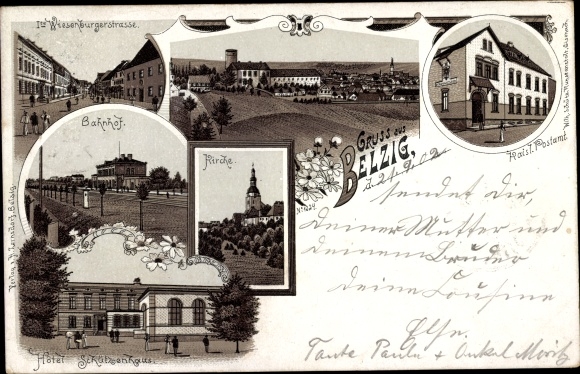 Wiesenburgerstrasse.
Bahnhof.
Kirche.
Gruss aus
Belzig,
Kaisl. Postamt
Hotel Schützenhaus.
sendet dir,
deiner Mutter und
deinem Bruder
deine Cousine
Else.
Tante Paula + Onkel Moritz